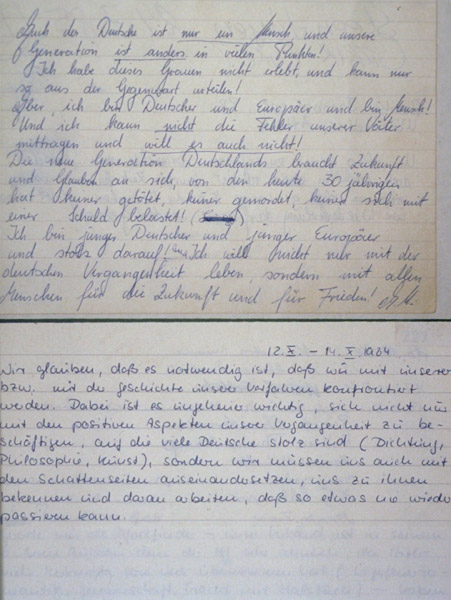 Auch der Deutsche ist nur ein Mensch und unsere
Generation ist anders in vielen Punkten!
Ich habe dieses Grauen nicht erlebt, und kann nur
so aus der Gegenwart urteilen!
Aber, ich bin Deutscher und Europäer und bin Mensch!
Und ich kann nicht die Fehler unserer Väter
mittragen und will es auch nicht!
Die neue Generation Deutschlands braucht Zukunft
und Glauben an sich, von den heute 30 jährigen
hat keiner getötet, keiner gemordet, keiner sich mit
einer Schuld belastet!
Ich bin junger Deutscher und junger Europäer
und stolz darauf! Ich will nicht nur mit der
deutschen Vergangenheit leben sondern mit allen
Menschen für die Zukunft und für Frieden!
12.X. – 14.X.1984
Wir glauben, daß es notwendig ist, daß wir mit unserer
bzw. mit der Geschichte unserer Vorfahren konfrontiert
werden. Dabei ist es ungeheuer wichtig, sich nicht nur
mit den positiven Aspekten unserer Vergangenheit zu be-
schäftigen, auf die viele Deutsche stolz sind (Dichtung,
Philosophie, Kunst), sondern wir müssen uns auch mit
den Schattenseiten auseinandersetzen, uns zu ihnen
bekennen und daran arbeiten, daß so etwas nie wieder
passieren kann.